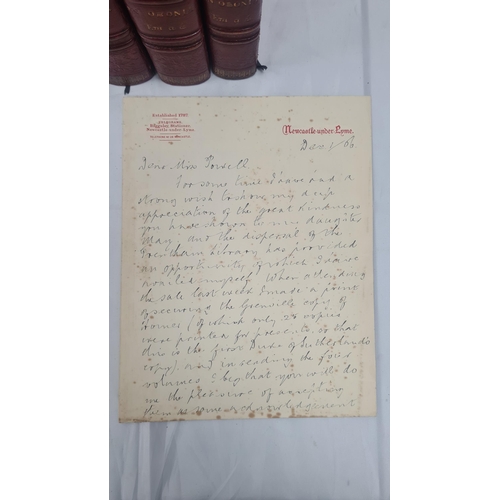 Established 1797
Newcastle under Lyme.
Newcastle under Lyme.
Dec 1/06
Dear Mrs Powell
For some time I have had a
strong wish to show my deep
appreciation of the great kindness
you have shown to my daughter
May and the dispersal of the
Trentham Library has provided
an opportunity of which I have
availed myself. When attending
the sale last week I made a point
of securing the Grenville copy of
(of which only 25 copies
were printed for presents, so that
this is the first Duke of Sutherland's
copy). And in sending the
volumes I beg that you will do
me the pleasure of accepting
them as some acknowledgement